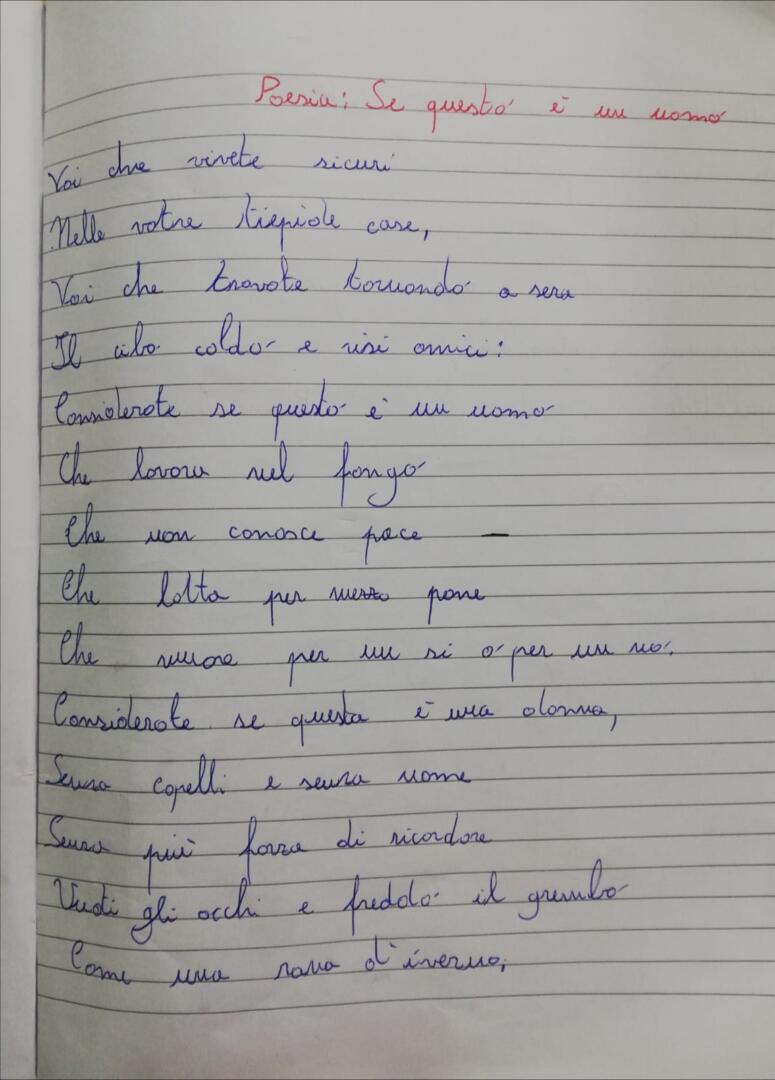 Poesia: Se questo è un uomo
Voi che vivete sicuri
Nelle votre tiepide case,
Voi che trovate tornando a sera
Il cibo caldo e visi amici:
Considerate se questo è un uomo
Che lavora nel fango
Che non conosce pace
Che lotta per mezzo pane
Che muore per un si o per un no.
Considerate se questa è una donna,
Senza capelli e senza nome
Senza più forza di ricordare
Vuoti gli occhi e freddo il grembo
Come una rana d'inverno,